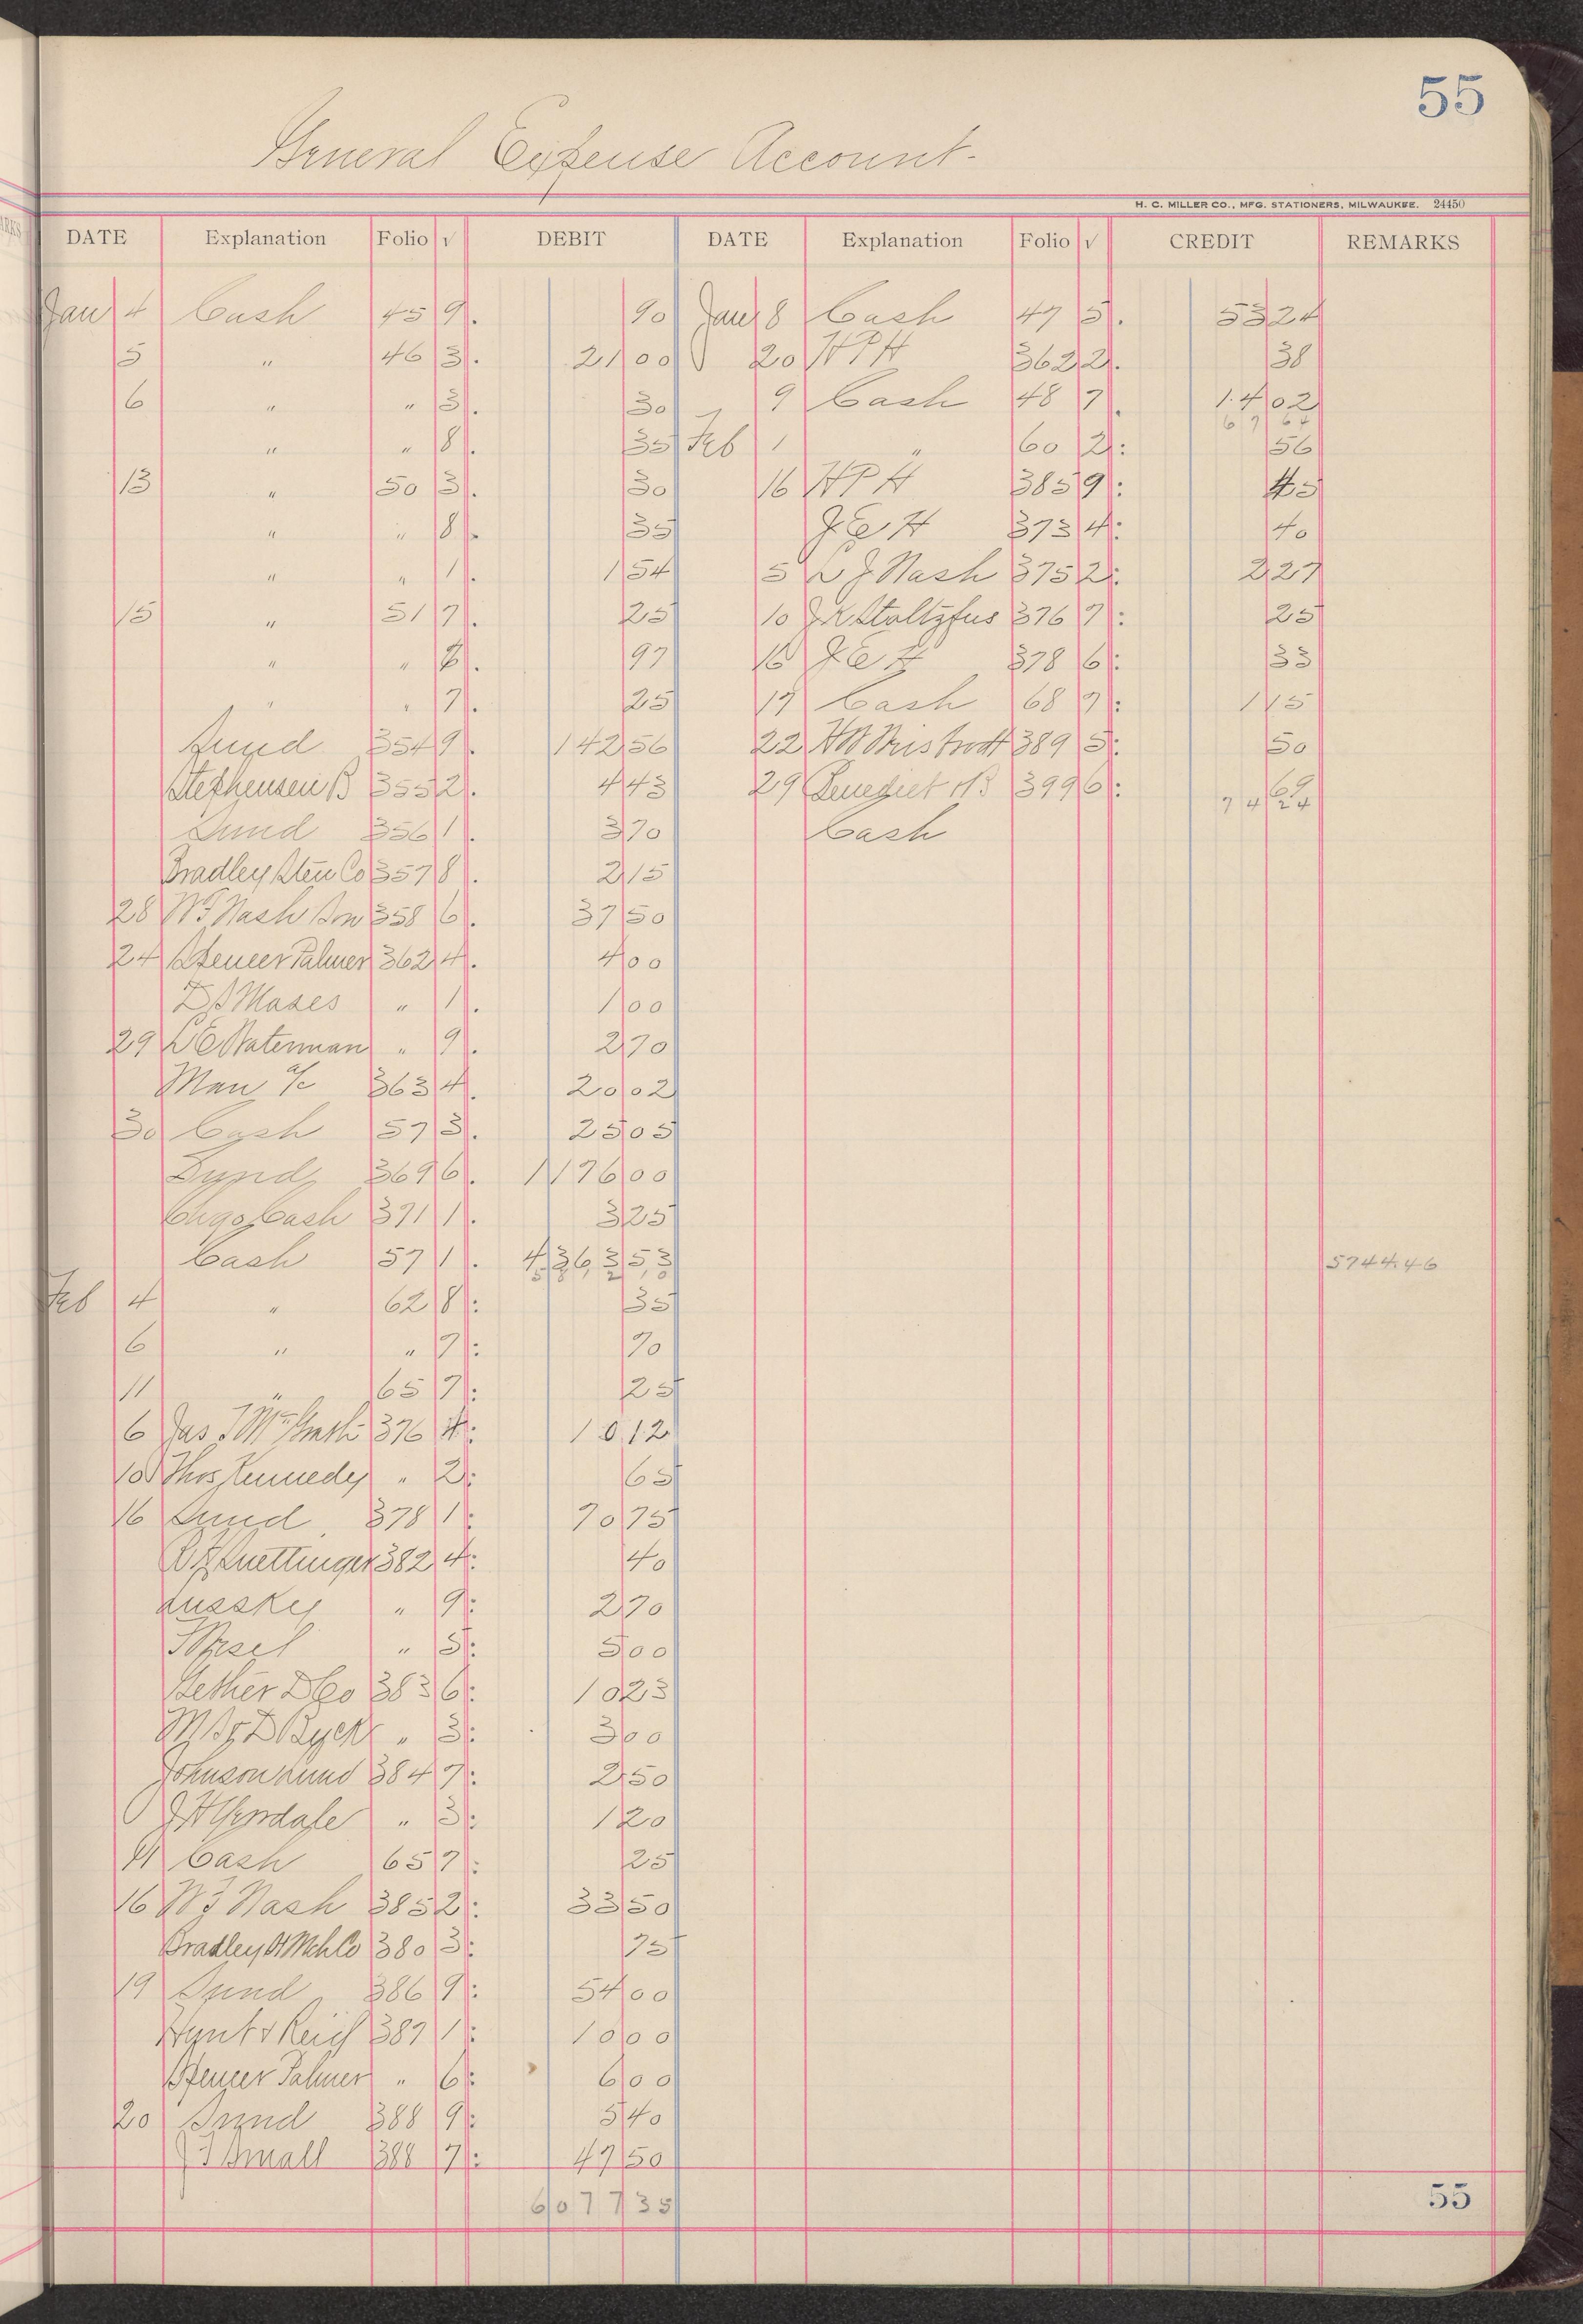 55
General Expense Account-
H. C. MILLER CO., MFG. STATIONERS, MILWAUKEE. 24450
DATE Explanation Folio √ DEBIT DATE Explanation Folio √ CREDIT REMARKS
Jan 4 Cash 45 9. 90 Jan 8 Cash 47 5. 53 24
5 " 46 3. 21 00 20 HPH 362 2. 38
6 " " 3. 30 9 Cash 48 7. 14 02
67 64
" " 8. 35 Feb 1 " 60 2: 56
13 " 50 3. 30 16 HPH 385 9:
" " 8. 35 J E H 373 4: 40
" " 1. 1 54 5 L J Nash 375 2: 2 27
15 " 51 7. 25 10 J K Stoltzfus 376 7: 25
" " 97 16 J E H 378 6: 33
" " 7. 25 17 Cash 68 7: 1 15
Sund 354 9. 142 56 22 389 5: 50
Stephensen B 355 2. 4 43 29 Benedict 399 6: 69
74 24
Sund 356 1. 3 70 Cash
Bradley Sten Co 357 8. 2 15
28 W F Nash Son 358 6. 37 50
24 Spencer Palmer 362 4. 4 00
D S Moses " 1. 1 00
29 L E Waterman " 9. 2 70
Man a/c 363 4. 20 02
30 Cash 57 3. 25 05
Sund 369 6. 1176 00
Chgo Cash 371 1. 3 25
Cash 57 1. 4363 53 5744.46
Feb 4 " 62 8: 35
6 " " 7: 70
11 " 65 7: 25
6 Jas 376 4: 10 12
10 Thos Kennedy " 2: 65
16 Sund 378 1: 70 75
382 4: 40
Lussky " 9: 2 70
" 5: 5 00
Gether D Co 383 6: 10 23
" 3: 3 00
Johnson Lund 384 7: 2 50
" 3: 1 20
11 Cash 65 7: 25
16 W F Nash 385 2: 33 50
Bradley Mch Co 380 3: 75
19 Sund 386 9: 54 00
Hunt & 387 1: 10 00
Spencer Palmer " 6: 6 00
20 Sund 388 9: 5 40
J F Small 388 7: 47 50
6077 35
55